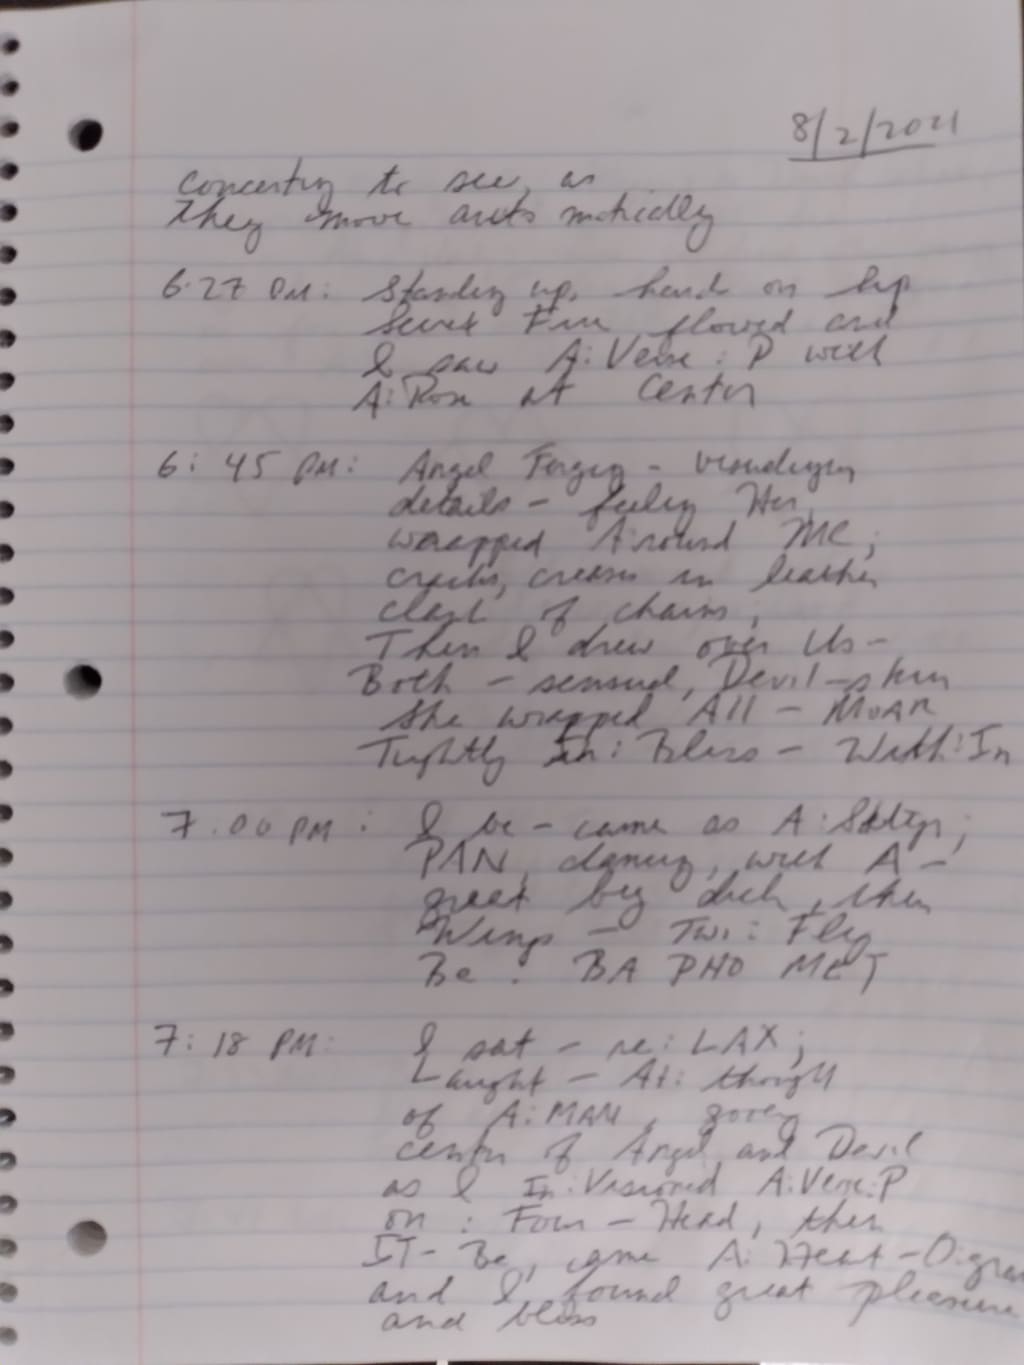 8/2/2021
to see, as
they move automatically
6:27 PM: Standing up, hand on hip
flowed and
I saw A:Verse:P with
A:Rose at Center
6:45 PM: Angel
details - feeling Her
wrapped Around ME;
cracks, creases in leather
of chains,
Then I drew over Us -
Both - sensual, Devil-skin
She wrapped All - MOAR
Tightly In: Bliss - With:In
7:00 PM: I be-came as A:
PAN, dancing, with A -
great big dick, then
Wings - Fly
Be: BA PHO MET
7:18 PM: I sat - re:LAX;
Laught - At: thought
of A:MAN,
center of Angel and Devil
as I In:Visioned A:Verse:P
on: Four-Head, then
IT- Be, came A:
and I found great pleasure
and bliss